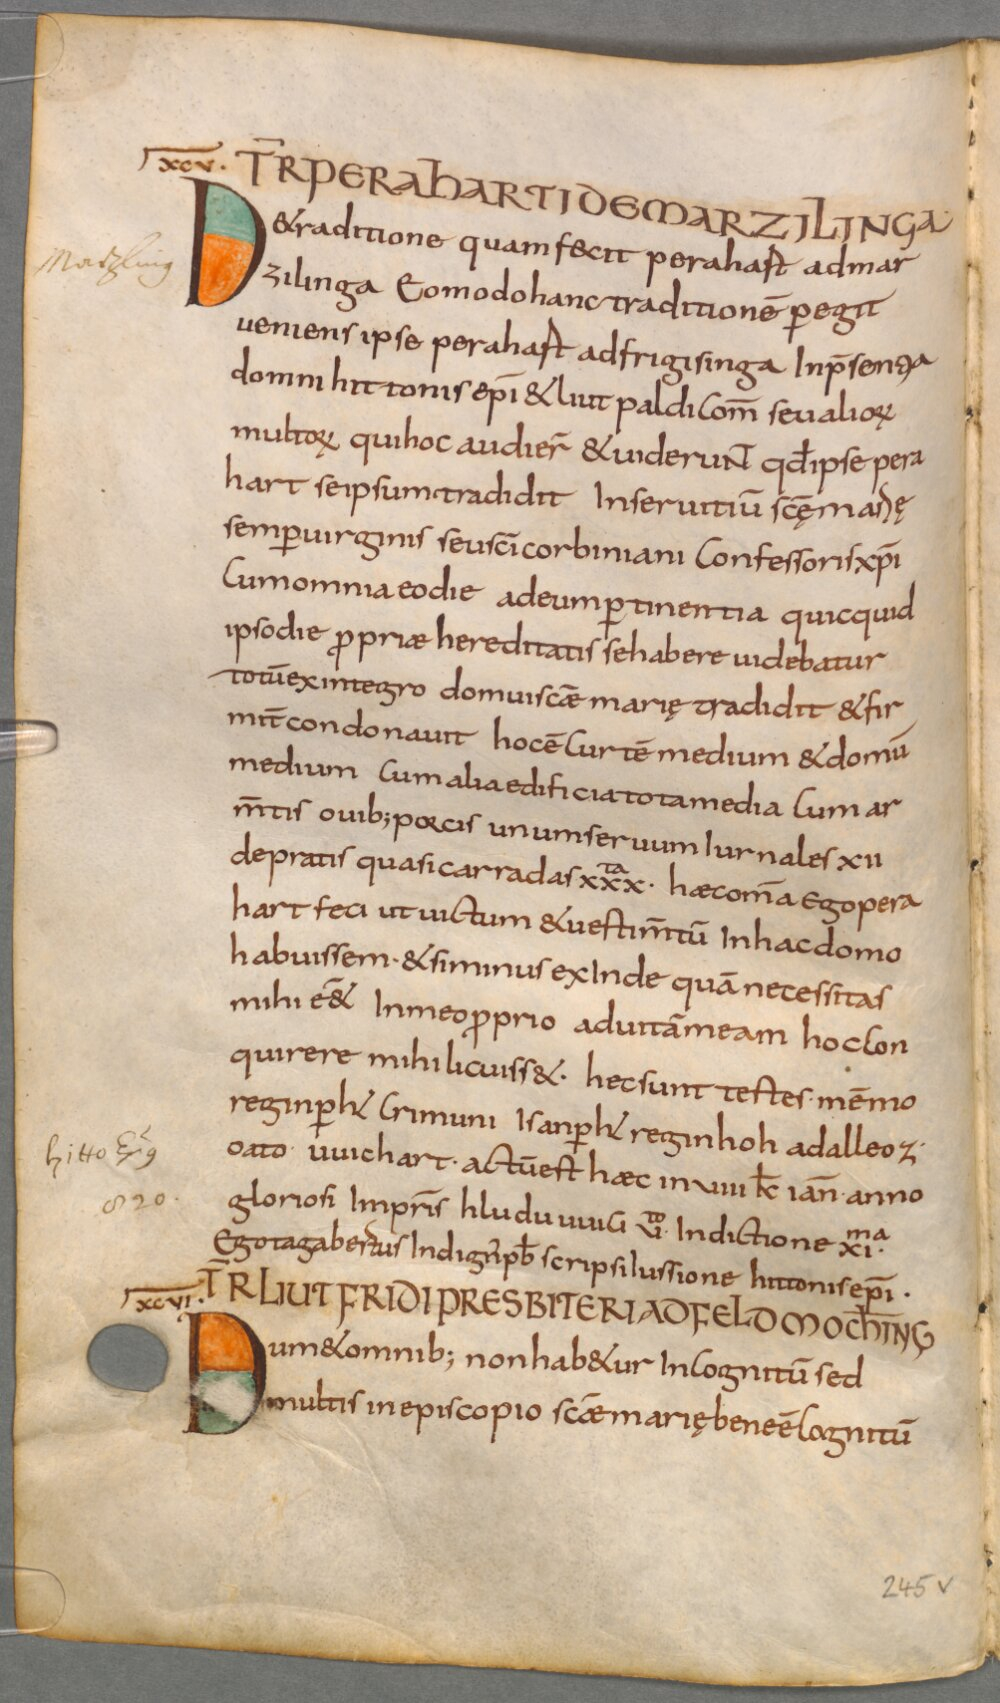 XCV. T̄R PERAHARTI DE MARZILINGA
D&raditione quam fecit perahart admar
Marzling
zilinga Eomodo hanc traditionē p̱egit
ueniens ipse perahart ad frigisinga In p̄sentia
domni hittonis ep̄i & liutpaldi Com̄ seu alioꝝ
multoꝝ qui hoc audier̄ & uiderunt qđ ipse pera
hart se ipsum tradidit In seruitiū sc̄ę marię
semp̱ uirginis seu sc̄i corbiniani Confessoris xp̄i
Cum omnia eo die ad eum p̱tinentia quicquid
ipso die ꝓpriæ hereditatis se habere uidebatur
totū ex integro domui sc̄æ marię tradidit & fir
mit̄ condonauit hoc ē Curtē medium & domū
medium Cum alia edificia tota media Cum ar
m̄tis ouib; porcis unum seruum Iurnales xii
de pratis quasi carradas xxx.ta hæc om̄a Ego pera
hart feci ut uictum & uestim̄tū In hac domo
habuissem. & si minus ex Inde quā necessitas
mihi ēē& In meo ꝓprio ad uitā meam hoc Con
quirere mihi licuiss&. hec sunt testes. mēmo
reginp̱ht Crimuni Isanp̱ht reginhoh adalleoz.
hitto Ep̄9
820.
oato. uuichart. actū est hæc in viiii kł ian̄. anno
gloriosi Imp̄ris hludouuici vi.to Indictione xi.ma
Ego tagabertus Indign̄ pb̄ scripsi Iussione hittonis ep̄i.
XCVI. T̄R LIUTFRIDI PRESBITERI AD FELDMOCHING
Dum & omnib; non hab&ur Incognitū sed
multis in episcopio sc̄æ marię bene ē Cognitū
245 v